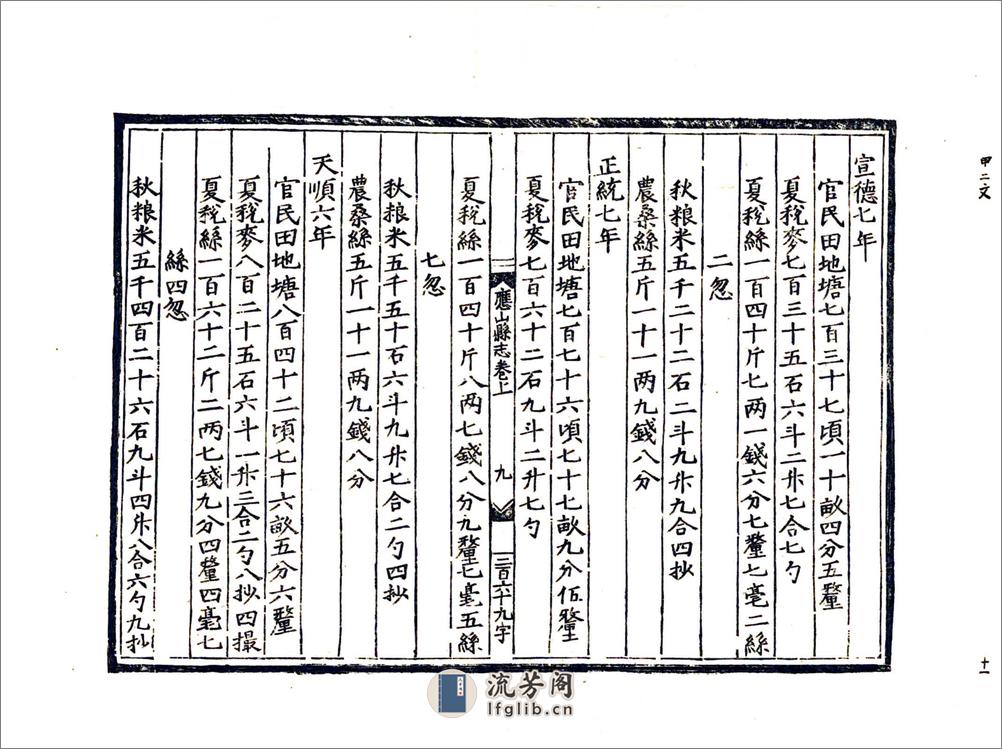 甲二文
宣德七年
官民田地塘七百三十七頃一十畝四分五釐
夏稅麥七百三十五石六斗二升七合七勺
夏稅絲一百四十斤七两一錢六分七釐七毫二絲
二忽
秋粮米五千二十二石二斗九升九合四抄
農桑絲五斤一十一两九錢八分
正統七年
官民田地塘七百七十六頃七十七畝九分伍釐
夏稅麥七百六十二石九斗二升七勺
應山縣志卷上
九
二百六十九字
夏稅絲一百四十斤八两七錢八分九釐七毫五絲
七忽
秋粮米五千五十石六斗九升七合二勺四抄
農桑絲五斤一十一两九錢八分
天順六年
官民田地塘八百四十二頃七十六畝五分六釐
夏稅麥八百二十五石六斗一升三合二勺八抄四撮
夏稅絲一百六十二斤二两七錢九分四釐四毫七
絲四忽
秋粮米五千四百二十六石九斗四升八合六勺九抄
十一
流芳阁
lfglib.cn